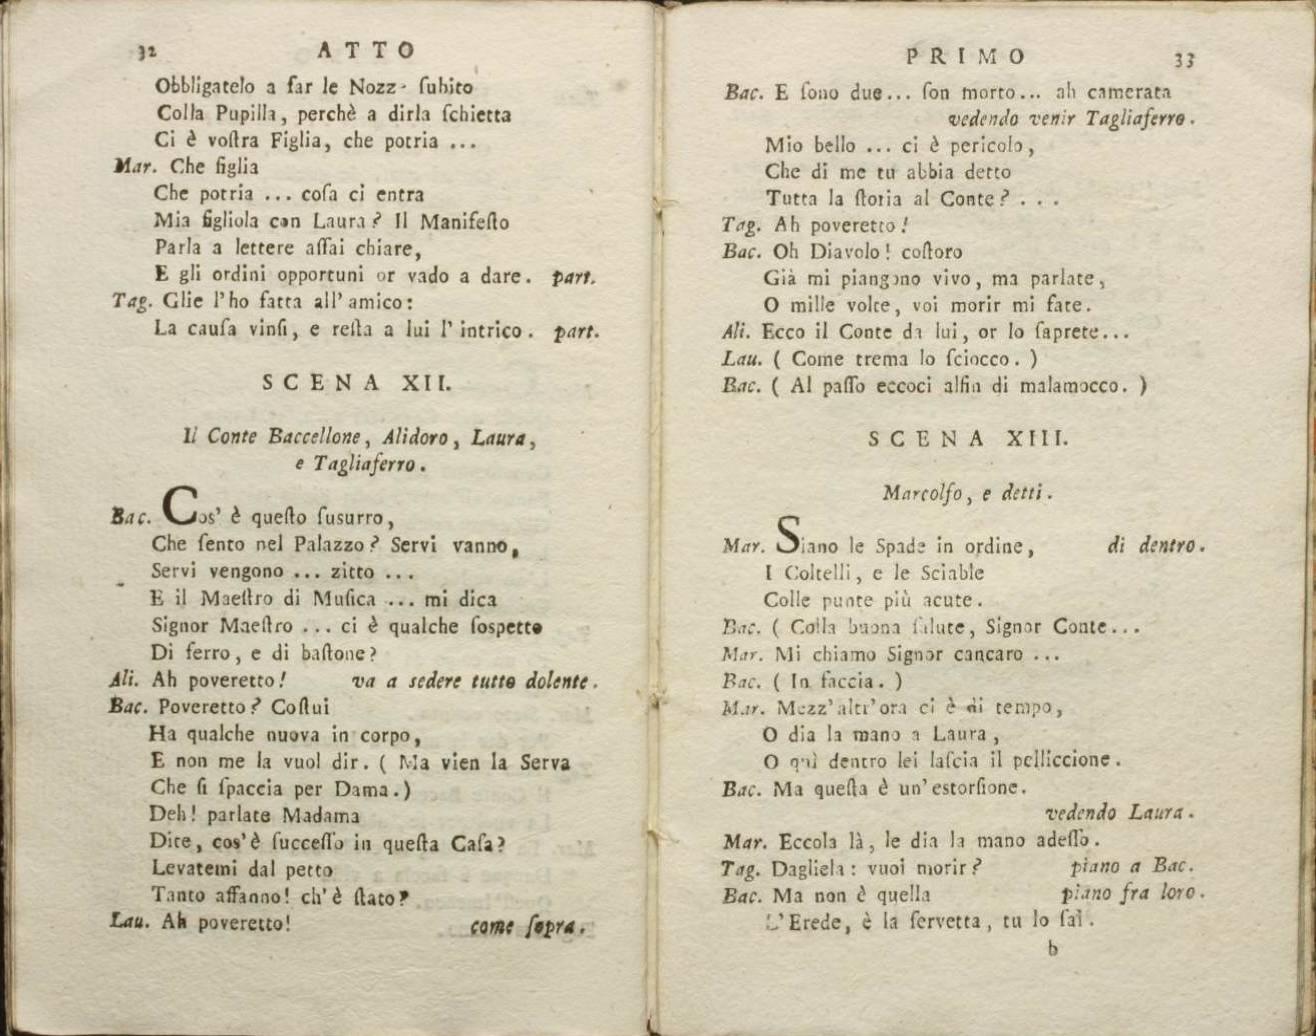 32 ATTO
Obbligatelo a far le Nozz- ſubito
Colla Pupilla, perchè a dirla ſchietta
Ci è voſtra Figlia, che potria ...
Mar. Che figlia
Che potria ... coſa ci entra
Mia figliola con Laura? Il Manifeſto
Parla a lettere aſſai chiare,
E gli ordini opportuni or vado a dare. part.
Tag. Glie l'ho fatta all' amico:
La cauſa vinſi, e reſta a lui l' intrico. part.
SCENA XII.
Il Conte Baccellone, Alidoro, Laura,
e Tagliaferro.
Bac. Cos' è queſto ſusurro,
Che ſento nel Palazzo? Servi vanno,
Servi vengono ... zitto ...
E il Maeſtro di Muſica ... mi dica
Signor Maeſtro ... ci è qualche ſospetto
Di ferro, e di baſtone?
Ali. Ah poveretto! va a sedere tutto dolente.
Bac. Poveretto? Coſtui
Ha qualche nuova in corpo,
E non me la vuol dir. ( Ma vien la Serva
Che ſi ſpaccia per Dama.)
Deh! parlate Madama
Dite, cos'è ſucceſſo in queſta Caſa?
Levatemi dal petto
Tanto affanno! ch' è ſtato?
Lau. Ah poveretto! come ſopra.
PRIMO 33
Bac. E ſono due... ſon morto... ah camerata
vedendo venir Tagliaferro.
Mio bello ... ci è pericolo,
Che di me tu abbia detto
Tutta la ſtoria al Conte? ...
Tag. Ah poveretto!
Bac. Oh Diavolo! coſtoro
Già mi piangono vivo, ma parlate,
O mille volte, voi morir mi fate.
Ali. Ecco il Conte da lui, or lo ſaprete...
Lau. ( Come trema lo ſciocco. )
Bac. ( Al paſſo eccoci alfin di malamocco. )
SCENA XIII.
Marcolfo, e detti.
Mar. Siano le Spade in ordine, di dentro.
I Coltelli, e le Sciable
Colle punte più acute.
Bac. ( Colla buona ſalute, Signor Conte...
Mar. Mi chiamo Signor cancaro ...
Bac. ( In faccia. )
Mar. Mezz'altr'ora ci è di tempo,
O dia la mano a Laura,
O quì dentro lei laſcia il pelliccione.
Bac. Ma queſta è un' estorſione.
vedendo Laura.
Mar. Eccola là, le dia la mano adeſſo.
Tag. Dagliela: vuoi morir? piano a Bac.
Bac. Ma non è quella piano fra loro.
L'Erede, è la ſervetta, tu lo ſai.
b